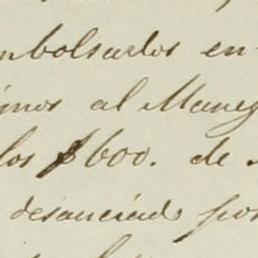 mbolsarlos en
imos al Maneg
los $600. de
desauciado por